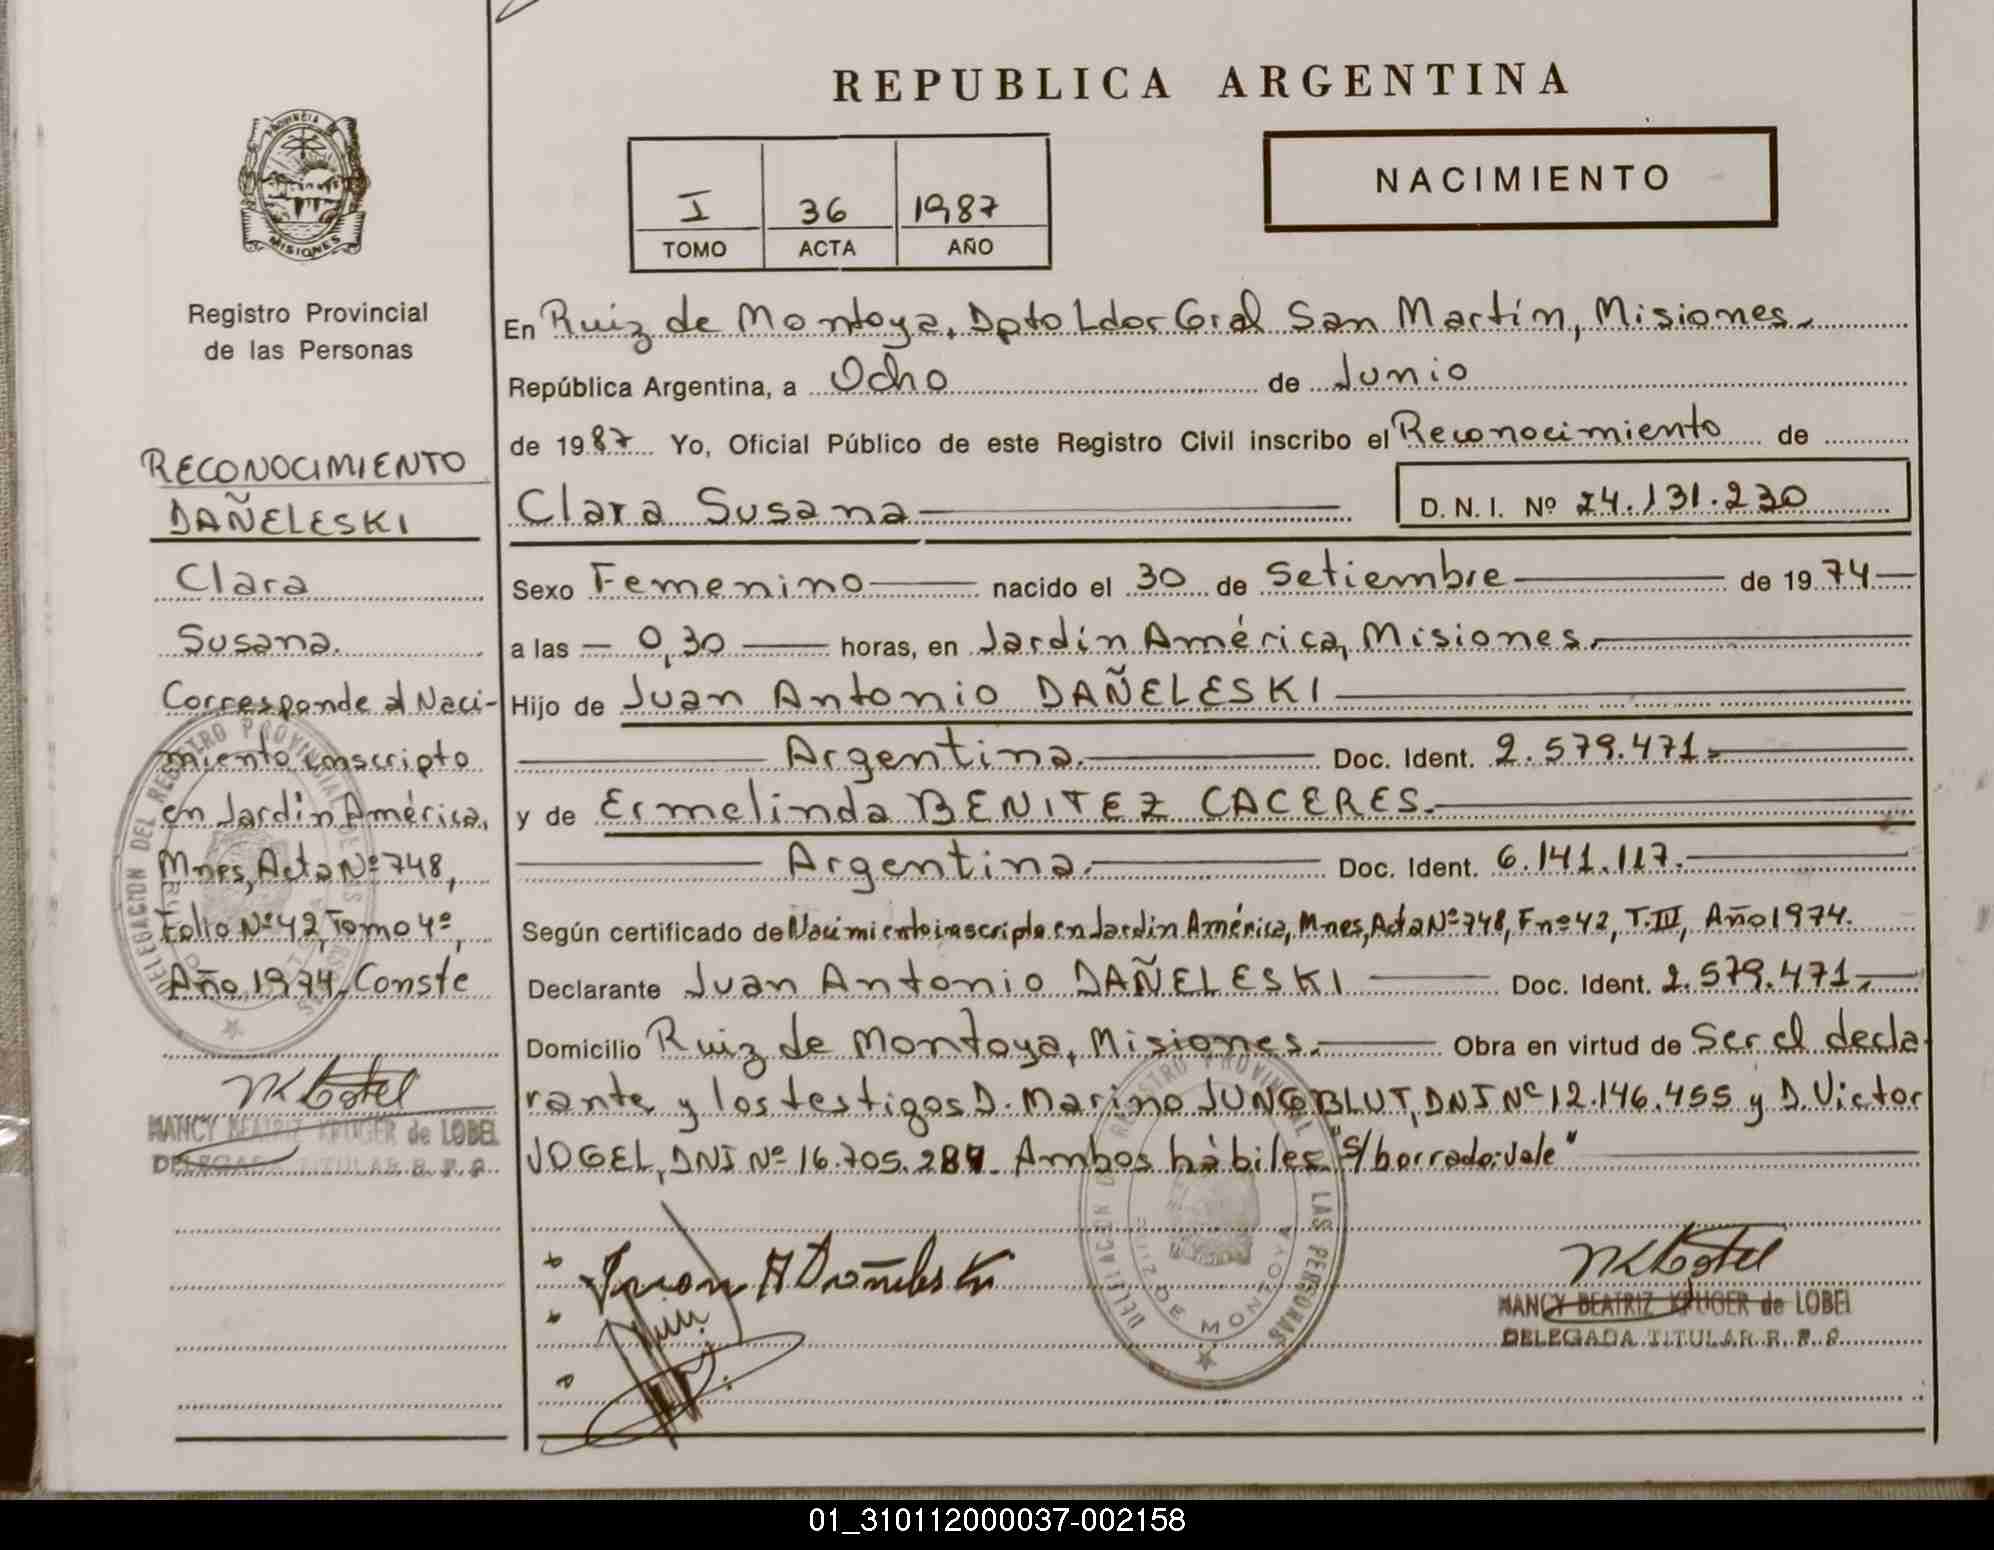 REPUBLICA ARGENTINA
PROVINCIA DE
MISIONES
I 36 1987
TOMO ACTA AÑO
NACIMIENTO
Registro Provincial
de las Personas
RECONOCIMIENTO
DAÑELESKI
Clara
Susana.
Corresponde al Naci-
miento inscripto
en Jardín América,
Mnes, Acta Nº 748,
Folio Nº 42, Tomo 4º,
Año 1974. Conste
NANCY BEATRIZ KRUGER de LOBEL
DELEGADA TITULAR R. P. P.
En Ruiz de Montoya, Dpto Ldor Gral San Martín, Misiones.
República Argentina, a Ocho de Junio
de 1987 Yo, Oficial Público de este Registro Civil inscribo el Reconocimiento de
Clara Susana D. N. I. Nº 24.131.230
Sexo Femenino nacido el 30 de Setiembre de 1974
a las 0,30 horas, en Jardín América, Misiones.
Hijo de Juan Antonio DAÑELESKI
Argentina. Doc. Ident. 2.579.471.
y de Ermelinda BENITEZ CACERES.
Argentina. Doc. Ident. 6.141.117.
Según certificado de Nacimiento inscripto en Jardín América, Mnes, Acta Nº 748, F nº 42, T. III, Año 1974.
Declarante Juan Antonio DAÑELESKI Doc. Ident. 2.579.471.
Domicilio Ruiz de Montoya, Misiones. Obra en virtud de Ser el decla-
rante y los testigos D. Marino JUNGBLUT, DNI Nº 12.146.455 y D. Victor
JOGEL, DNI Nº 16.705.287. Ambos hábiles. "S/borrado: vale"
Juan A Dañeleski
DELEGACION DEL REGISTRO PROVINCIAL DE LAS PERSONAS
RUIZ DE MONTOYA
NANCY BEATRIZ KRUGER de LOBEL
DELEGADA TITULAR R. P. P.
01_310112000037-002158